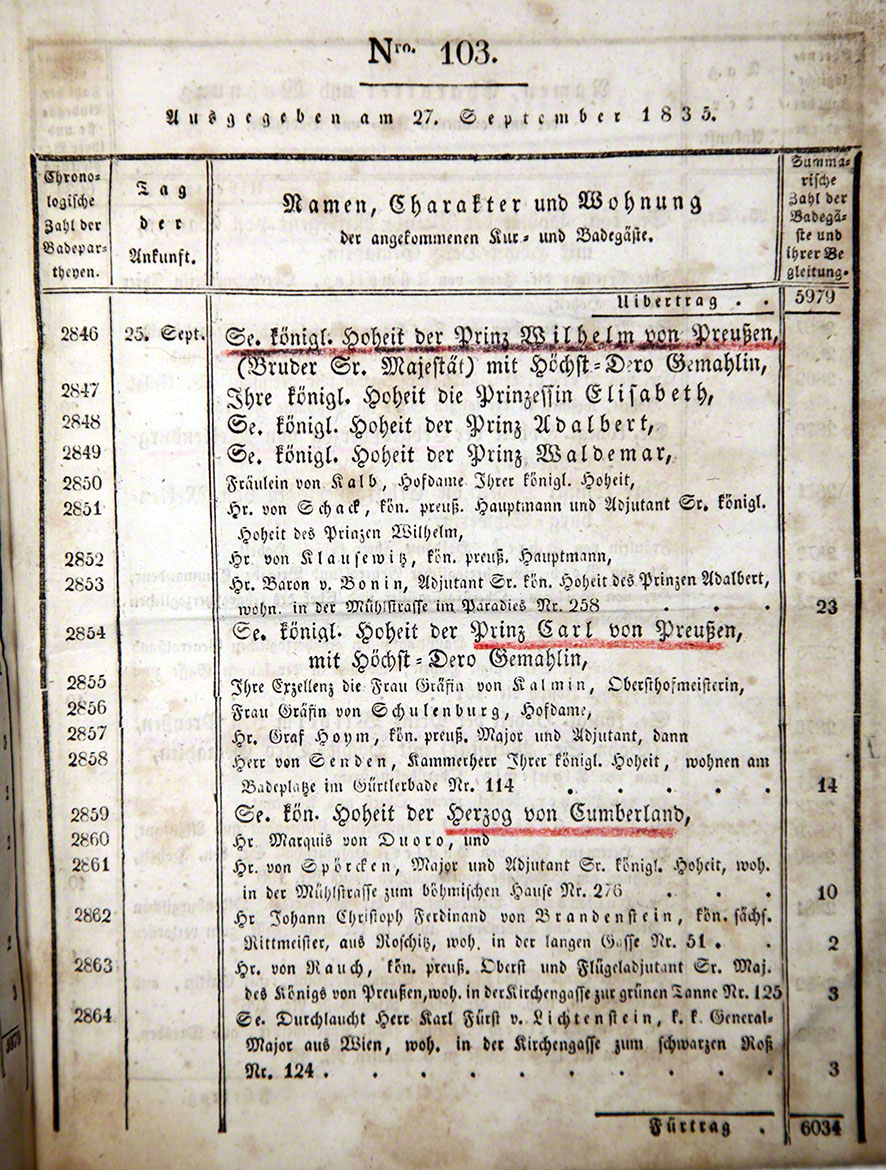 Nro. 103.
Ausgegeben am 27. September 1835.
Chrono-
logische
Zahl der
Badepar-
theyen.
Tag
der
Ankunft.
Namen, Charakter und Wohnung
der angekommenen Kur- und Badegäste.
Summa-
rische
Zahl der
Badegä-
ste und
ihrer Be
gleitung.
Uibertrag . . 5979
2846 25. Sept. Se. königl. Hoheit der Prinz Wilhelm von Preußen,
(Bruder Sr. Majestät) mit Höchst-Dero Gemahlin,
2847 Ihre königl. Hoheit die Prinzessin Elisabeth,
2848 Se. königl. Hoheit der Prinz Adalbert,
2849 Se. königl. Hoheit der Prinz Waldemar,
2850 Fräulein von Kalb, Hofdame Ihrer königl. Hoheit,
2851 Hr. von Schack, kön. preuß. Hauptmann und Adjutant Sr. königl.
Hoheit des Prinzen Wilhelm,
2852 Hr. von Klausewitz, kön. preuß. Hauptmann,
2853 Hr. Baron v. Bonin, Adjutant Sr. kön. Hoheit des Prinzen Adalbert,
wohn. in der Mühlstrasse im Paradies Nr. 258 . . . 23
2854 Se. königl. Hoheit der Prinz Carl von Preußen,
mit Höchst-Dero Gemahlin,
2855 Ihre Exzellenz die Frau Gräfin von Kalmin, Obersthofmeisterin,
2856 Frau Gräfin von Schulenburg, Hofdame,
2857 Hr. Graf Hoym, kön. preuß. Major und Adjutant, dann
2858 Herr von Senden, Kammerherr Ihrer königl. Hoheit, wohnen am
Badeplatze im Gürtlerbade Nr. 114 . . . . . 14
2859 Se. kön. Hoheit der Herzog von Cumberland,
2860 Hr Marquis von Duoro, und
2861 Hr. von Spörcken, Major und Adjutant Sr. königl. Hoheit, woh.
in der Mühlstrasse zum böhmischen Hause Nr. 276 . . . 10
2862 Hr Johann Christoph Ferdinand von Brandenstein, kön. sächs.
Rittmeister, aus Roschitz, woh. in der langen Gasse Nr. 51 . . 2
2863 Hr. von Rauch, kön. preuß. Oberst und Flügeladjutant Sr. Maj.
des Königs von Preußen, woh. in der Kirchengasse zur grünen Tanne Nr. 125 3
2864 Se. Durchlaucht Herr Karl Fürst v. Lichtenstein, k. k. General-
Major aus Wien, woh. in der Kirchengasse zum schwarzen Roß
Nr. 124 . . . . . . . . . . 3
Fürtrag . 6034